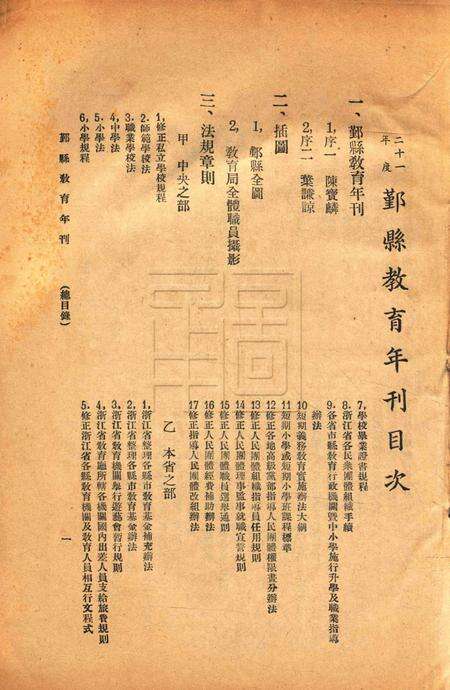 二十一年度 鄞縣教育年刊目次
一、鄞縣教育年刊
1,序一 陳寶麟
2,序二 葉謙諒
二、插圖
1,鄞縣全圖
2,教育局全體職員攝影
三、法規章則
甲 中央之部
1,修正私立學校規程
2,師範學校法
3,職業學校法
4,中學法
5,小學法
6,小學規程
7,學校畢業證書規程
8,浙江省各民衆團體組織手續
9,各省市縣教育行政機關暨中小學施行升學及職業指導辦法
10短期義務教育實施辦法大綱
11短期小學或短期小學班課程標準
12修正各地高級黨部指導人民團體權限畫分辦法
13修正人民團體組織指導員任用規則
14修正人民團體理事監事就職宣誓規則
15修正人民團體職員選舉通則
16修正人民團體經費補助辦法
17修正指導人民團體改組辦法
乙 本省之部
1,浙江省整理各縣市教育基金補充辦法
2,浙江省整理各縣市教育基金辦法
3,浙江省教育機關舉行遊藝會暫行規則
4,浙江省教育廳所轄各機關國內出差人員支給旅費規則
5,修正浙江省各縣教育機關及教育人員相互行文程式
鄞縣教育年刊 (總目錄) 一